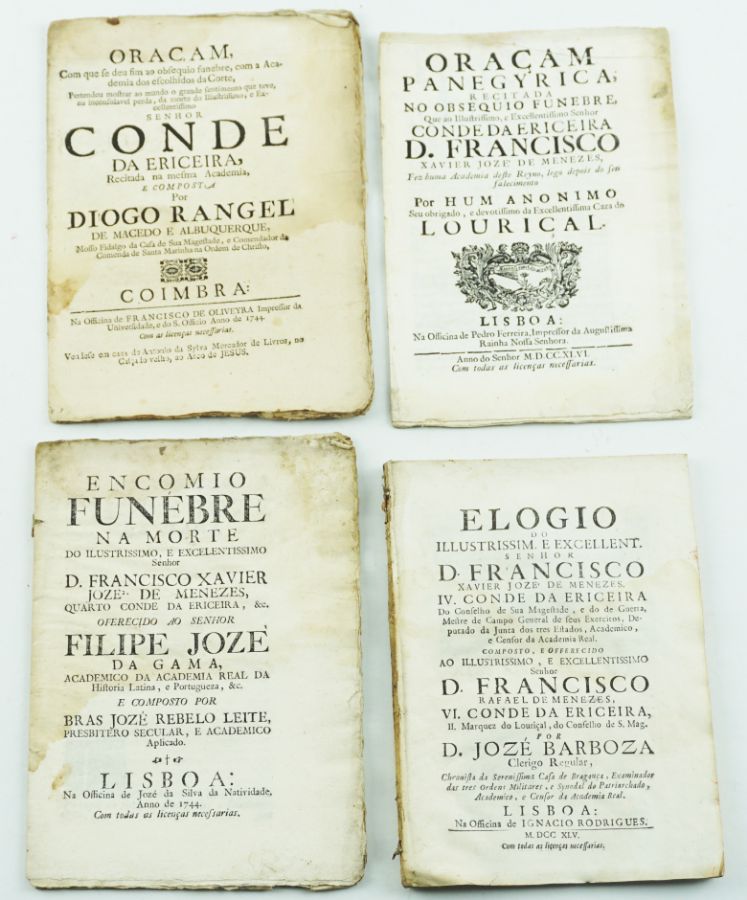 ORACAM,
Com que se deu fim ao obsequio funebre, com a Aca-
demia dos escolhidos da Corte,
Pertendeu mostrar ao mundo o grande sentimento que teve,
na inconsolavel perda, da morte do Illustrissimo, e Ex-
cellentissimo
SENHOR
CONDE
DA ERICEIRA,
Recitada na mesma Academia,
E COMPOSTA
Por
DIOGO RANGEL
DE MACEDO E ALBUQUERQUE,
Mosso Fidalgo da Casa de Sua Magestade, e Comendador da
Comenda de Santa Marinha na Ordem de Christo,
COIMBRA:
Na Officina de FRANCISCO DE OLIVEYRA Impressor da
Universidade, e do S. Officio Anno de 1744.
Com as licenças necessarias.
Vendese em casa de Antonio da Sylva Mercador de Livros, no
velho, ao Arco de JESUS.
ORACAM
PANEGYRICA,
RECITADA
NO OBSEQUIO FUNEBRE,
Que ao Illustrissimo, e Excellentissimo Senhor
CONDE DA ERICEIRA
D. FRANCISCO
XAVIER JOZE' DE MENEZES,
Fez huma Academia deste Reyno, logo depois do seu
falecimento
Por HUM ANONIMO
Seu obrigado, e devotissimo da Excellentissima Caza do
LOURICAL.
LISBOA:
Na Officina de Pedro Ferreira, Impressor da Augustissima
Rainha Nossa Senhora.
Anno do Senhor M.D.CC.XLVI.
Com todas as licenças necessarias.
ENCOMIO
FUNEBRE
NA MORTE
DO ILUSTRISSIMO, E EXCELENTISSIMO
Senhor
D. FRANCISCO XAVIER
JOZE' DE MENEZES,
QUARTO CONDE DA ERICEIRA, &c.
OFERECIDO AO SENHOR
FILIPE JOZÉ
DA GAMA,
ACADEMICO DA ACADEMIA REAL DA
Historia Latina, e Portugueza, &c.
E COMPOSTO POR
BRAS JOZÉ REBELO LEITE,
PRESBITERO SECULAR, E ACADEMICO
Aplicado.
LISBOA:
Na Officina de Jozé da Silva da Natividade,
Anno de 1744.
Com todas as licenças necessarias.
ELOGIO
DO
ILLUSTRISSIM. E EXCELLENT.
SENHOR
D. FRANCISCO
XAVIER JOZE' DE MENEZES,
IV. CONDE DA ERICEIRA
Do Conselho de Sua Magestade, e do de Guerra,
Mestre de Campo General de seus Exercitos, De-
putado da Junta dos tres Estados, Academico,
e Censor da Academia Real.
COMPOSTO, E OFFERECIDO
AO ILLUSTRISSIMO, E EXCELLENTISSIMO
Senhor
D. FRANCISCO
RAFAEL DE MENEZES,
VI. CONDE DA ERICEIRA,
II. Marquez do Louriçal, do Conselho de S. Mag.
POR
D. JOZÉ BARBOZA
Clerigo Regular,
Chronista da Serenissima Casa de Bragança, Examinador
das tres Ordens Militares, e Synodal do Patriarchado,
Academico, e Censor da Academia Real.
LISBOA:
Na Officina de IGNACIO RODRIGUES.
M. DCC XLV.
Com todas as licenças necessarias.